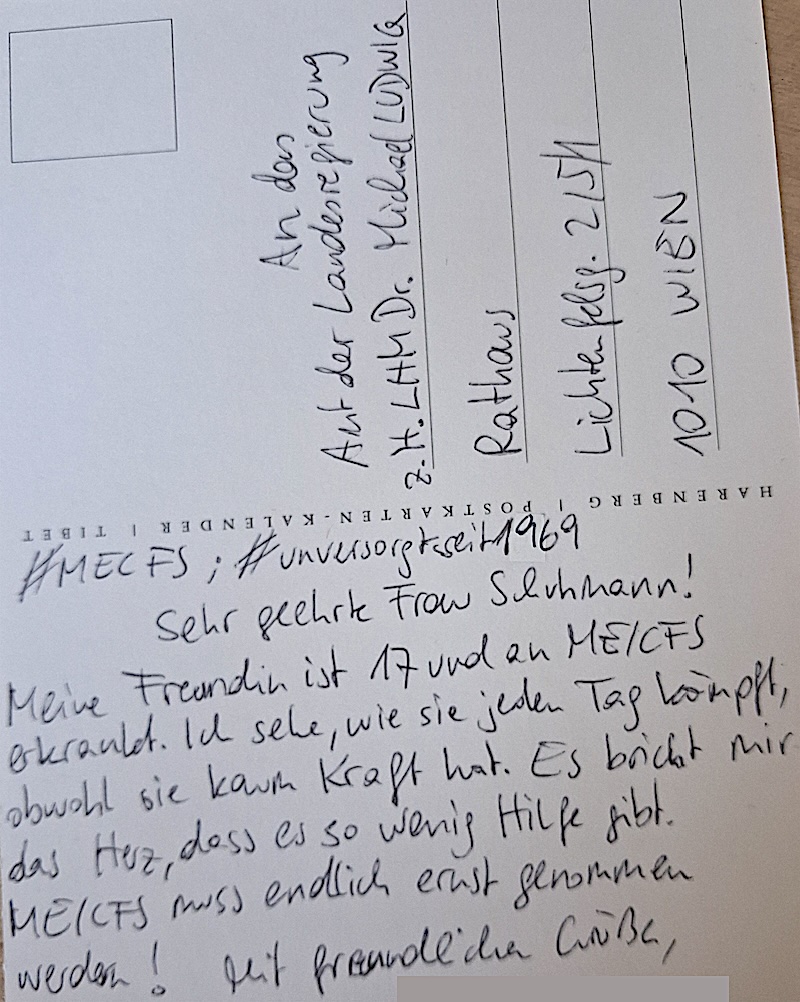 An das
Amt der Landesregierung
z.H. LHM Dr. Michael LUDWIG
Rathaus
Lichtenfelsg. 2/5/1
1010 WIEN
HARENBERG | POSTKARTEN-KALENDER | TIBET
#MECFS ; #unversorgtseit1969
Sehr geehrte Frau Schuhmann!
Meine Freundin ist 17 und an ME/CFS
erkrankt. Ich sehe, wie sie jeden Tag kämpft,
obwohl sie kaum Kraft hat. Es bricht mir
das Herz, dass es so wenig Hilfe gibt.
ME/CFS muss endlich ernst genommen
werden! Mit freundlichen Grüßen,